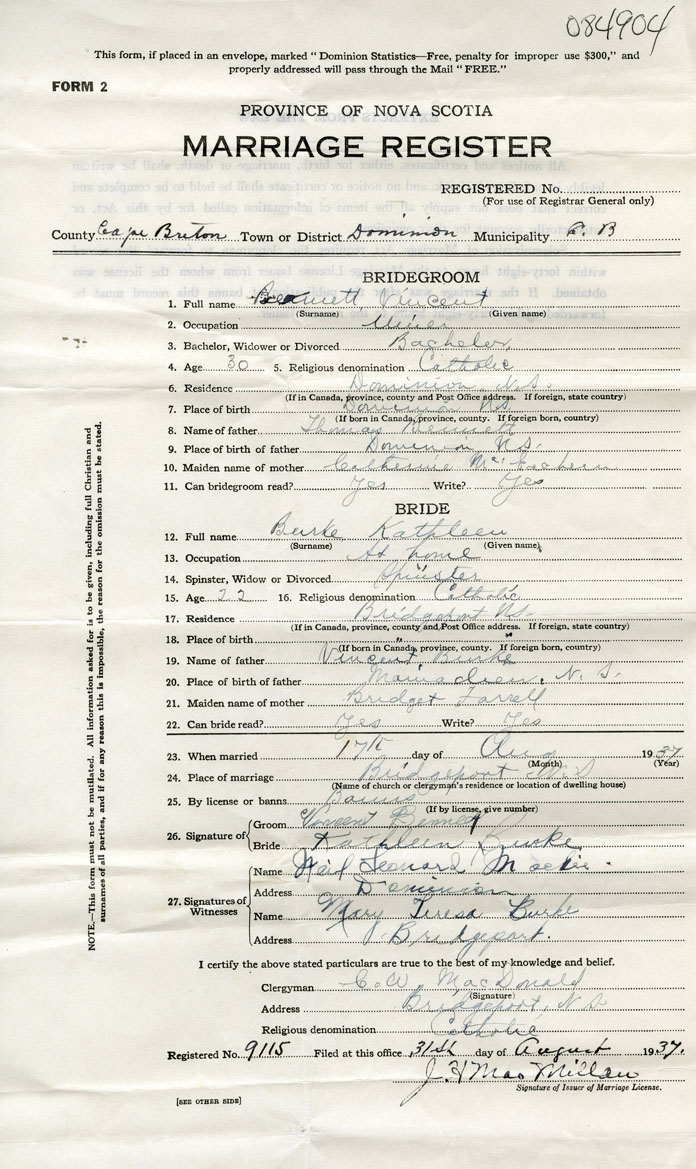 084904
This form, if placed in an envelope, marked "Dominion Statistics—Free, penalty for improper use $300," and
properly addressed will pass through the Mail "FREE."
FORM 2
PROVINCE OF NOVA SCOTIA
MARRIAGE REGISTER
REGISTERED No.
(For use of Registrar General only)
County Cape Breton Town or District Dominion Municipality C. B
BRIDEGROOM
1. Full name Bennett, Vincent
(Surname) (Given name)
2. Occupation Miner
3. Bachelor, Widower or Divorced Bachelor
4. Age 30 5. Religious denomination Catholic
6. Residence Dominion, N.S.
(If in Canada, province, county and Post Office address. If foreign, state country)
7. Place of birth Dominion NS.
(If born in Canada, province, county. If foreign born, country)
8. Name of father Thomas Bennett
9. Place of birth of father Dominion N.S.
10. Maiden name of mother Catherine McEachern
11. Can bridegroom read? Yes Write? Yes
BRIDE
12. Full name Burke Kathleen
(Surname) (Given name)
13. Occupation At home
14. Spinster, Widow or Divorced Spinster
15. Age 22 16. Religious denomination Catholic
17. Residence Bridgeport NS.
(If in Canada, province, county and Post Office address. If foreign, state country)
18. Place of birth " "
(If born in Canada, province, county. If foreign born, country)
19. Name of father Vincent Burke
20. Place of birth of father Mainadieu, N. S.
21. Maiden name of mother Bridget Farrell
22. Can bride read? Yes Write? Yes
23. When married 17th day of Aug 1937
(Month) (Year)
24. Place of marriage Bridgeport N.S
(Name of church or clergyman's residence or location of dwelling house)
25. By license or banns Banns
(If by license, give number)
26. Signature of Groom Vincent Bennett
Bride Kathleen Burke
27. Signatures of Witnesses
Name Neil Leonard
Address Dominion
Name Mary Teresa Burke
Address Bridgeport.
I certify the above stated particulars are true to the best of my knowledge and belief.
Clergyman C. W. MacDonald
(Signature)
Address Bridgeport, N S
Religious denomination Catholic
Registered No. 9115 Filed at this office 31st day of August 1937.
J. H MacMillan
Signature of Issuer of Marriage License.
[SEE OTHER SIDE]
NOTE.—This form must not be mutilated. All information asked for is to be given, including full Christian and
surnames of all parties, and if for any reason this is impossible, the reason for the omission must be stated.